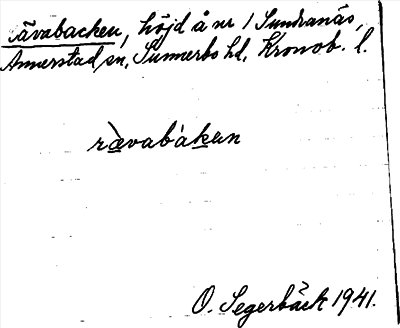 Rävabacken, höjd å nr 1 Sundranäs,
Annerstad sn, Sunnerbo hd, Kronob. l.
rävabàken
O. Segerbäck 1941.